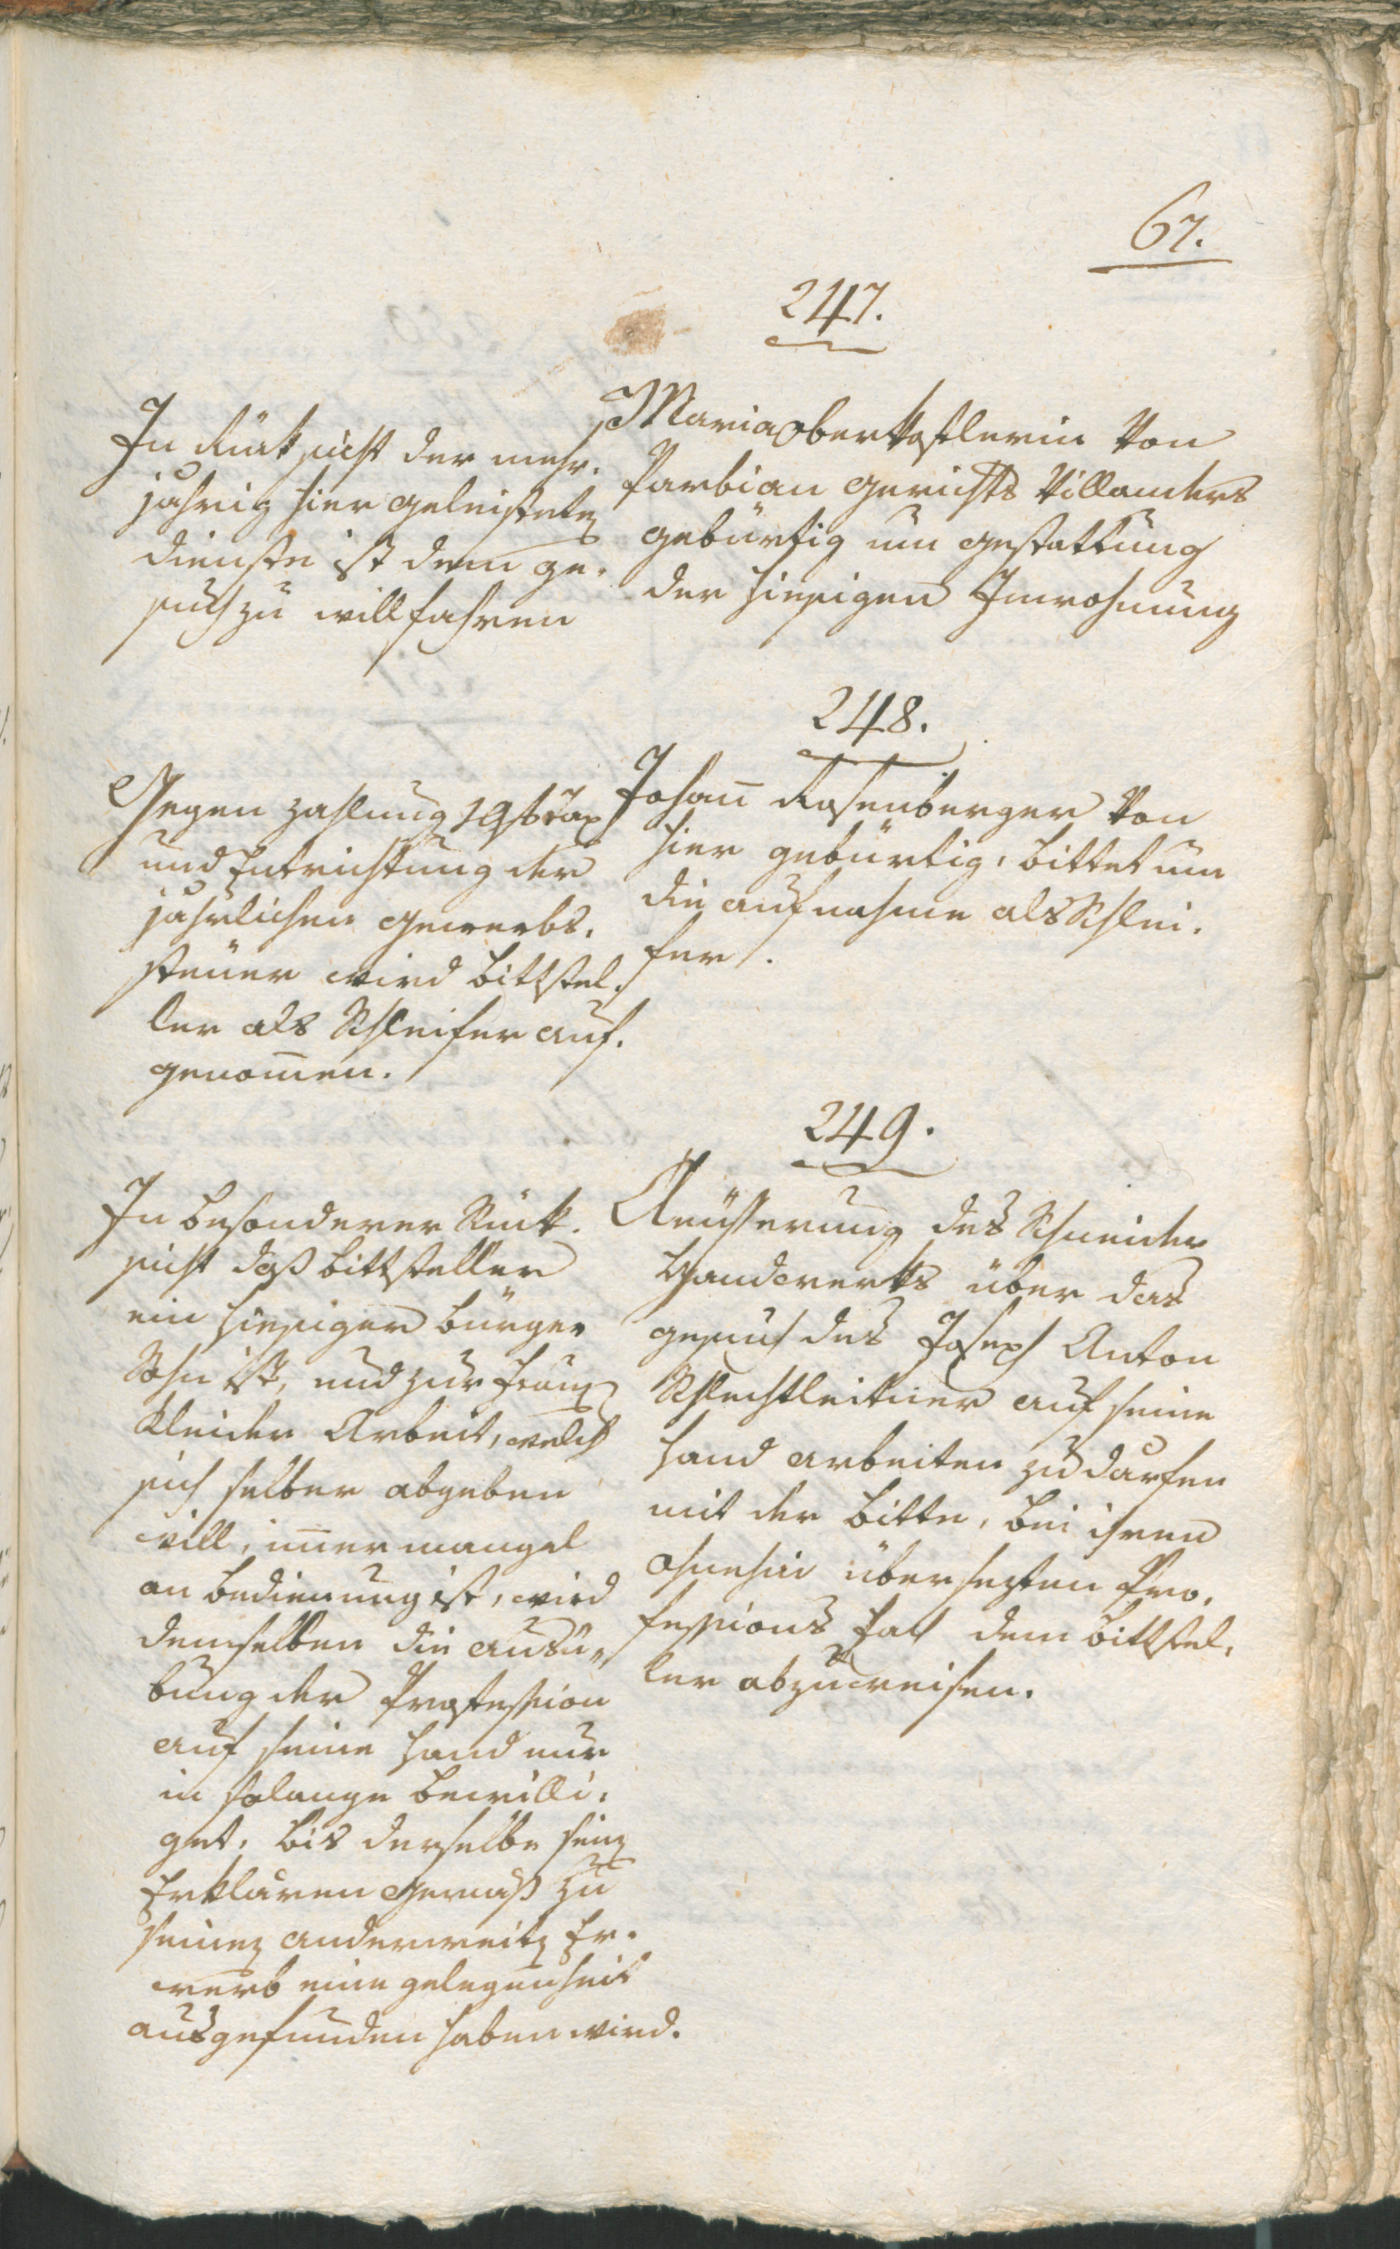 67.
247.
Maria Oberkoflerin von
Barbian Gerichts Villanders
gebürtig um Gestattung
der hiesigen Inwohnung
In Rüksicht der mehr-
jährig hier geleisteten
Dienste ist dem Ge-
such zu willfahren
248.
Johann Rosenberger von
hier gebürtig, bittet um
die Aufnahme als Schlei-
fer.
Gegen Zahlung Tax
und Entrichtung der
jährlichen Gewerbs-
steuer wird Bittstel-
ler als Schleifer auf-
genomen.
249.
Aeusserung des Schneider
Handwerks über das
Gesuch des Joseph Anton
Schlechtleitner auf seine
Hand arbeiten zu därfen
mit der Bitte, bei ihren
ohnehin übersezten Pro-
fessions den Bittstel-
ler abzuweisen.
In besonderer Rük-
sicht daß Bittsteller
ein hiesiger Bürgers
Sohn ist, und zur Frauen
Kleider Arbeit, welch
sich selber abgeben
will, imer mangel
an Bedienung ist, wird
demselben die Ausü-
bung der Profession
auf seine Hand nur
in solange bewilli-
get, bis derselbe sein
Erklären gemäß zu
seinen anderweitig Er-
werb eine Gelegenheit
ausgefunden haben wird.